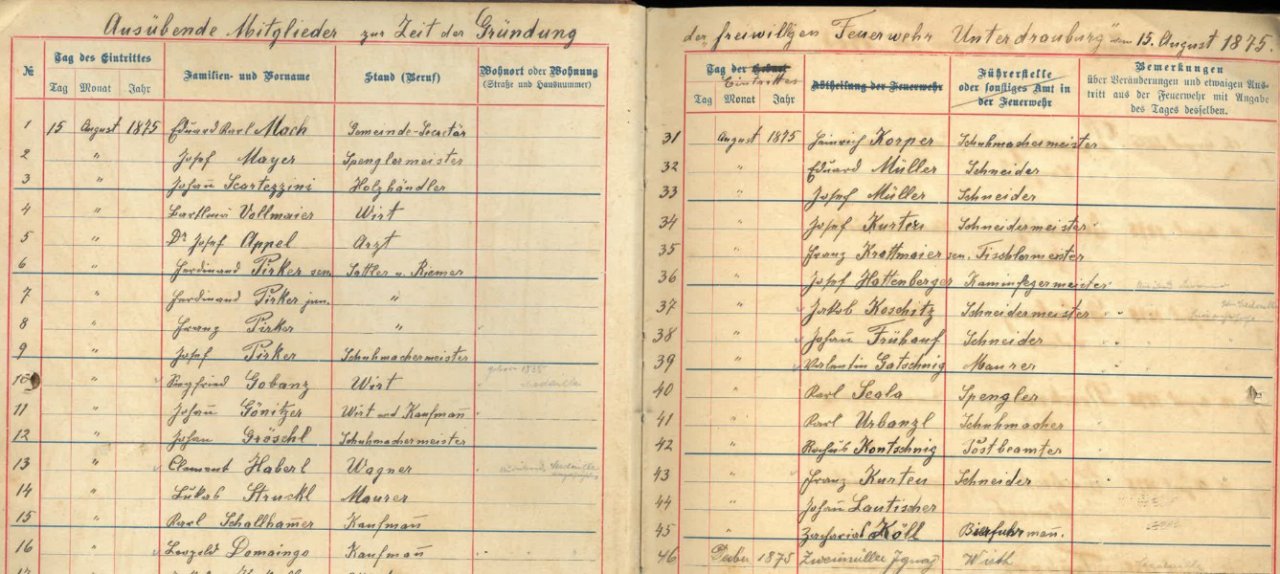 Ausübende Mitglieder zur Zeit der Gründung
№ Tag des Eintrittes Familien- und Vorname Stand (Beruf) Wohnort oder Wohnung
(Straße und Hausnummer)
Tag Monat Jahr
1 15 August 1875 Eduard Karl Mach Gemeinde-Secretär
2 " Josef Mayer Spenglermeister
3 " Johann Scartezzini Holzhändler
4 " Bartlmä Vollmaier Wirt
5 " Dr Josef Appel Arzt
6 " Ferdinand Pirker sen. Sattler u. Riemer
7 " Ferdinand Pirker jun. "
8 " Franz Pirker "
9 " Josef Pirker Schuhmachermeister
10 " Siegfried Gobanz Wirt
11 " Johann Gönitzer Wirt und Kaufmann
12 " Johan Gröschl Schuhmachermeister
13 " Clement Haberl Wagner
14 " Lukas Struckl Maurer
15 " Karl Schallhamer Kaufmann
16 " Leopold Domaingo Kaufmann
17
der freiwilligen Feuerwehr Unterdrauburg am 15. August 1875.
Tag der Eintrittes Abtheilung der Feuerwehr Führerstelle
oder sonstiges Amt in
der Feuerwehr
Bemerkungen
über Veränderungen und etwaigen Aus-
tritt aus der Feuerwehr mit Angabe
des Tages desselben.
Tag Monat Jahr
31 August 1875 Heinrich Korper Schuhmachermeister
32 " Eduard Müller Schneider
33 " Josef Müller Schneider
34 " Josef Kurten Schneidermeister
35 " Franz Krattmaier sen. Tischlermeister
36 " Josef Hattenberger Kaminfegermeister
37 " Jakob Koschitz Schneidermeister
38 " Johann Frühauf Schneider
39 " Valentin Gatschnig Maurer
40 " Karl Scala Spengler
41 " Karl Urbanzl Schuhmacher
42 " Kontschnig Postbeamter
43 " Franz Kurten Schneider
44 " Johann Lautischer
45 " Zacharias Köll Bierfuhrmann.
46 1875 Zweimüller Ignaz Wirth